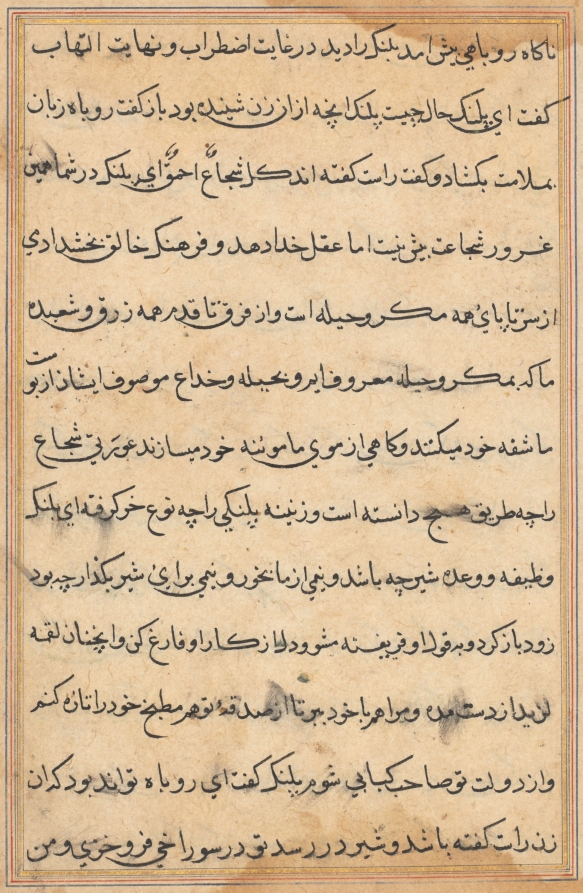 ناکاه روباهی پیش امد پلنک را دید در غایت اضطراب و نهایت التهاب
کفت ای پلنک حال چیست پلنک انچه از ان زن شینده بود باز کفت روباه زبان
بملامت بکشاد و کفت راست کفته اند کل شجاع احمق ای پلنک در شما همین
غرور شجاعت بیش نیست اما عقل خدا دهد و فرهنک خالق بخشد ادمی
از سر تا پای همه مکر و حیله است و از فرق تا قدم همه زرق و شعبده
ما که بمکر و حیله معروف ایم و بحیله و خداع موصوف ایشان از پوست
ما شقه خود میکنند و کاهی از موی ما موئنه خود میسازند عورتی شجاع
را چه طریق دانسته است و زنینه پلنکی را چه نوع خر کرفته ای پلنک
وظیفه و وعده شیر چه باشد و نیمی از ما بخور و نیمی برای شیر بکذار چه بود
زود باز کرد و بقول او فریفته مشو و دل از کار او فارغ کن و انچنان لقمه
لذیذ از دست مده و مرا همراه خود ببر تا از صدقهٔ تو هم مطبخ خود را تازه کنم
و از دولت تو صاحب کبابی شوم پلنک کفت ای روباه تواند بود که ان
زن راست کفته باشد و شیر در رسد تو در سوراخی فرو خزی و من